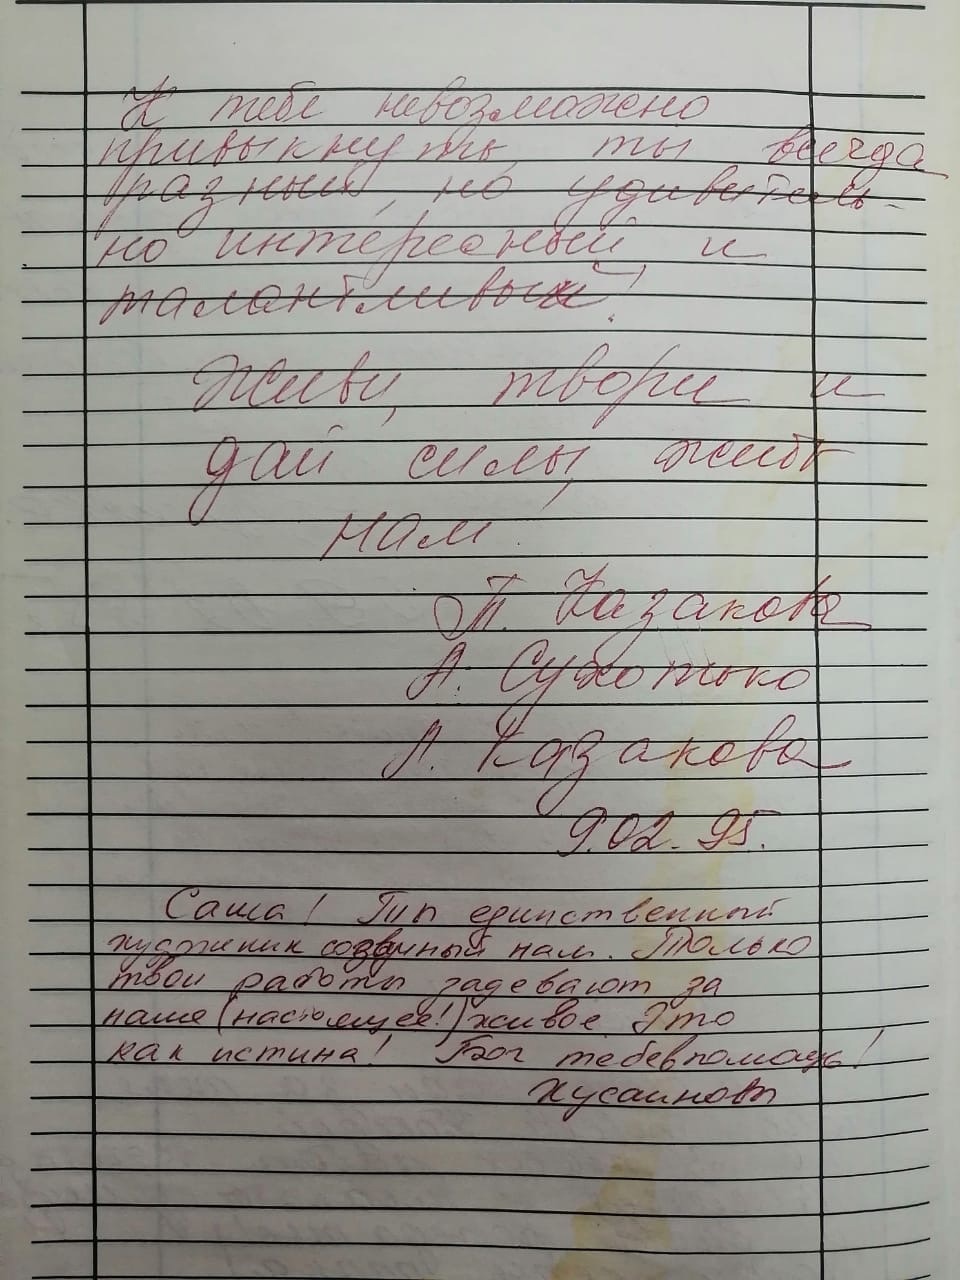 К тебе невозможно
привыкнуть, ты всегда
разный, но удивитель-
но интересный и
талантливый!
Живи, твори и
дай силы жить
нам.
Т. Казакова
А. Сухотько
Л. Казакова
9.02.95.
Саша! Ты единственный
художник созвучный нам. Только
твои работы задевают за
наше (настоящее!) живое. Это
как истина! Бог тебе в помощь!
Хусаиновы